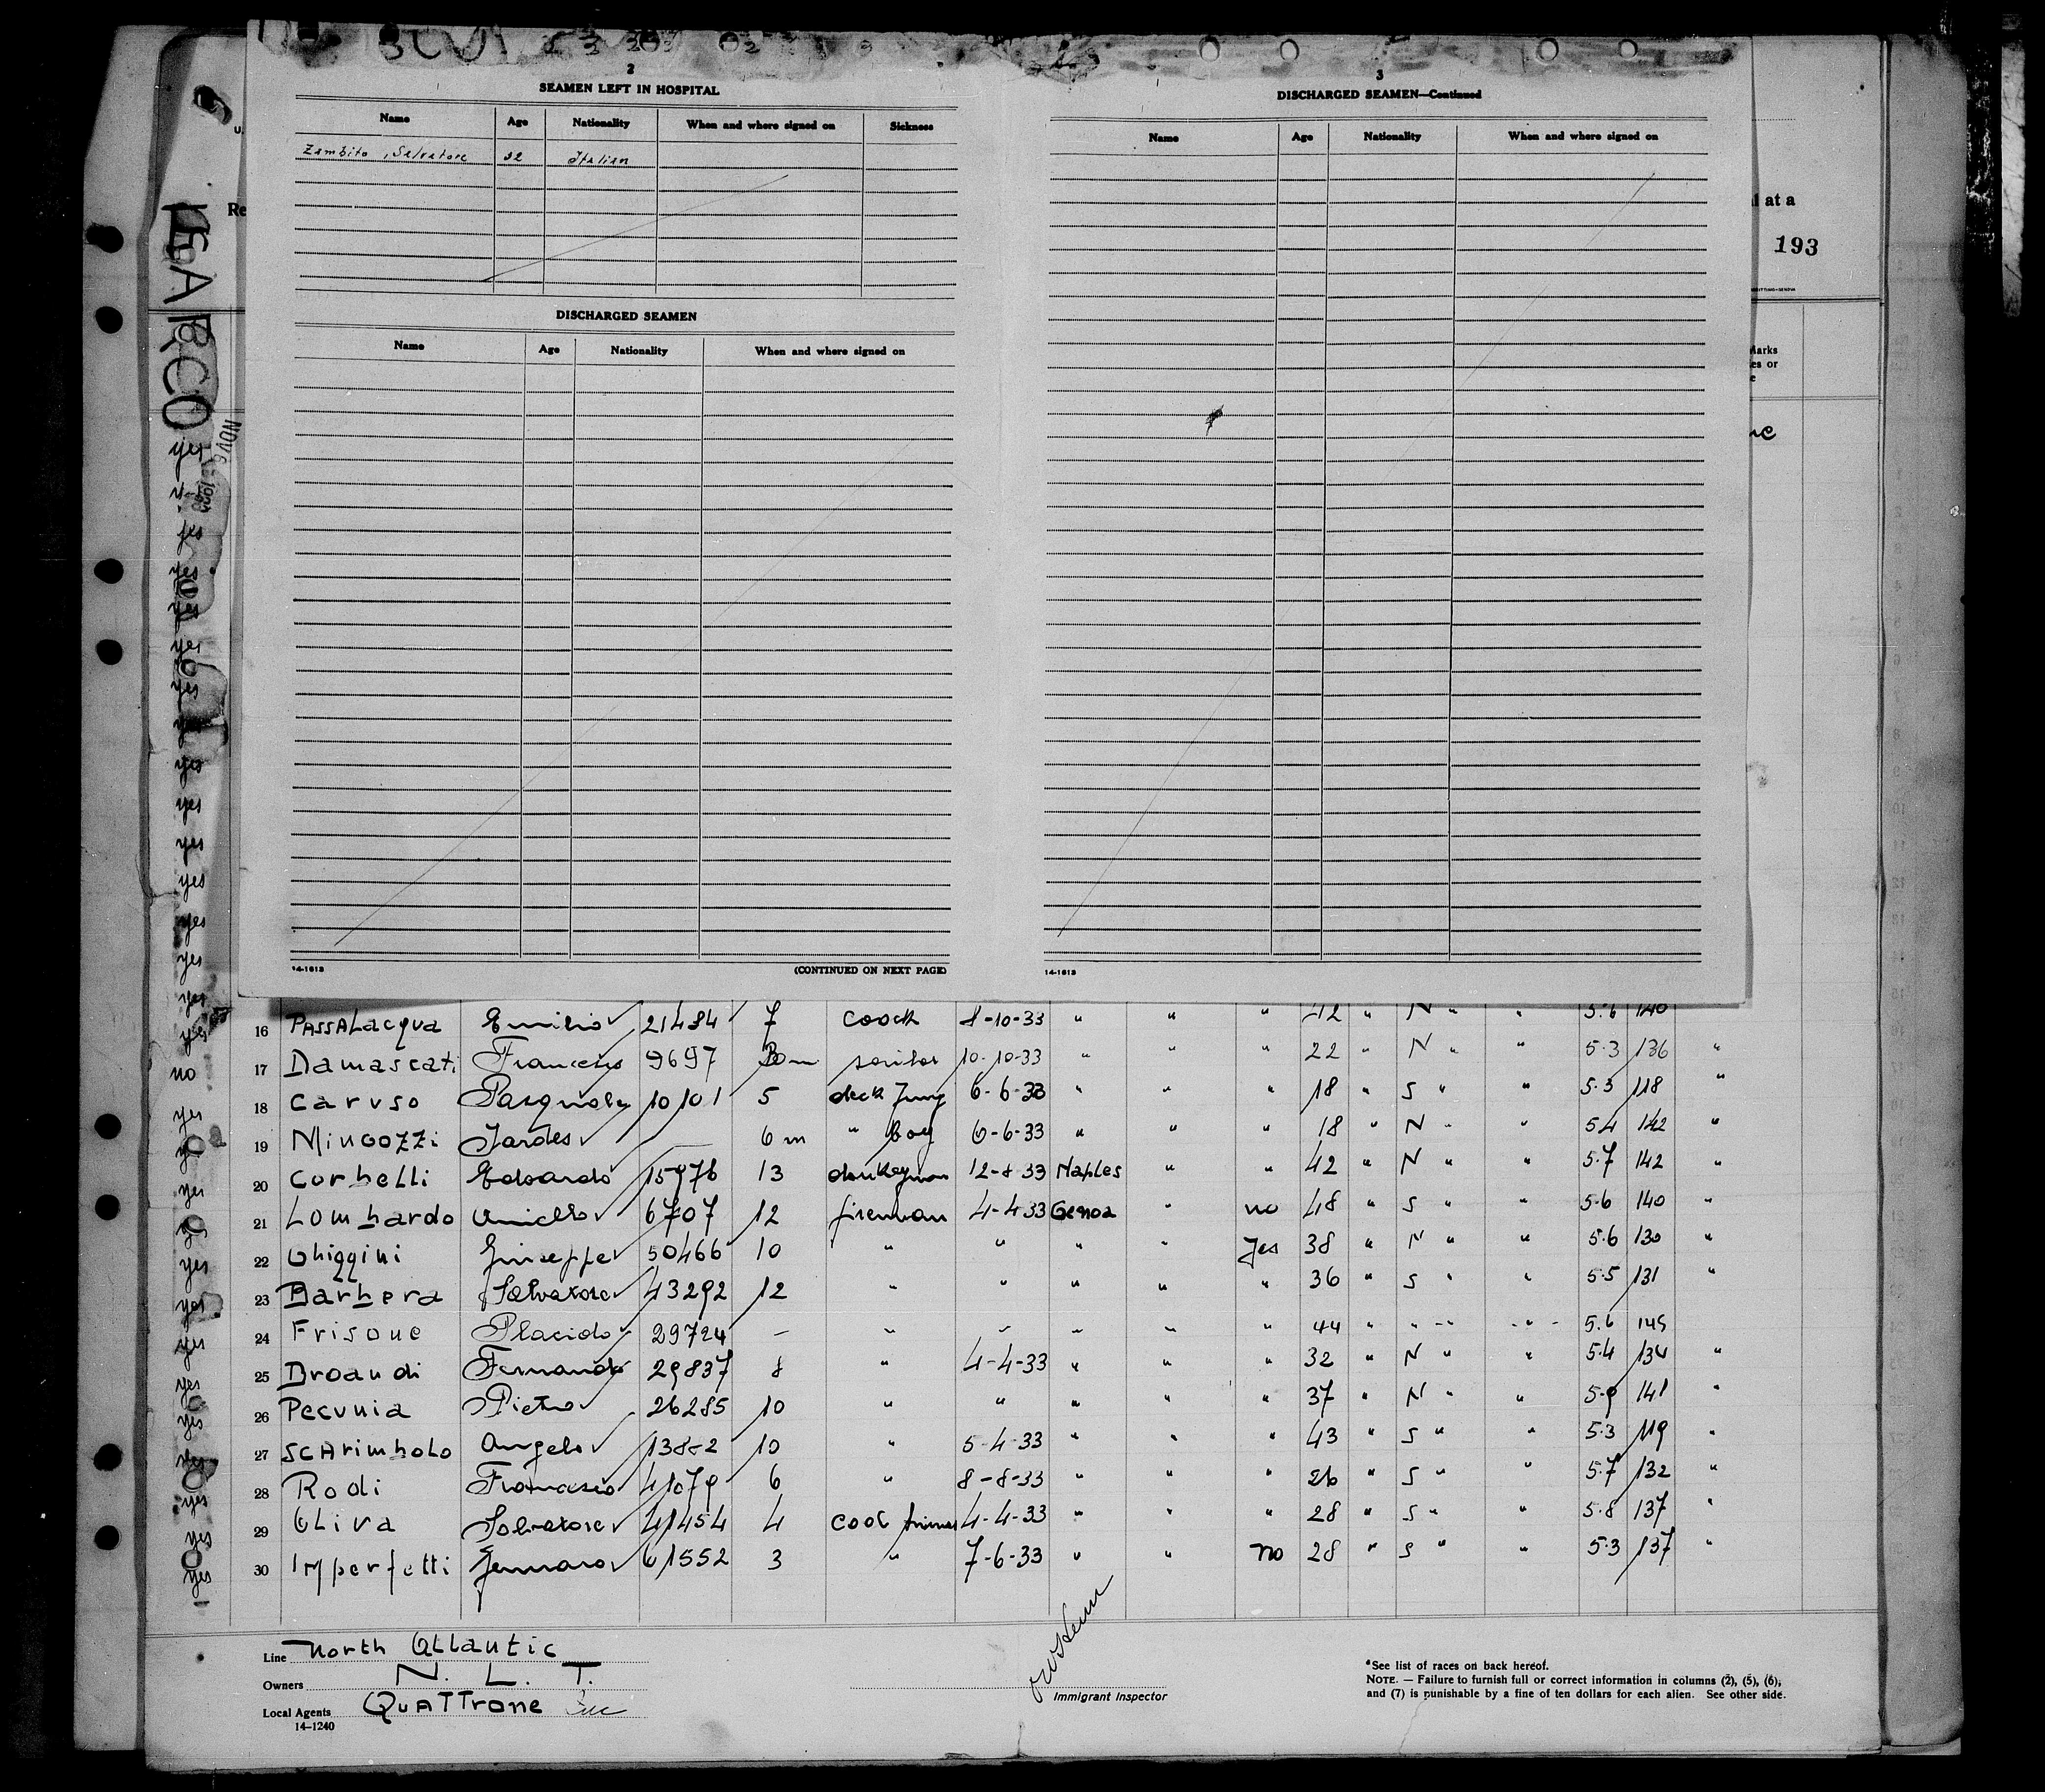 2
SEAMEN LEFT IN HOSPITAL
Name Age Nationality When and where signed on Sickness
Zambito, Salvatore 32 Italian
DISCHARGED SEAMEN
Name Age Nationality When and where signed on
14-1613 (CONTINUED ON NEXT PAGE)
3
DISCHARGED SEAMEN—Continued
Name Age Nationality When and where signed on
14-1613
l at a
193
Marks
es or
e
yes
yes
yes
yes
yes
yes
yes
yes
yes
yes
yes
yes
yes
yes
16 PASSALacqua Emilio 21484 7 coock 8-10-33 " " " 42 " N " " 5.6 140
17 Damascati Francesco 9697 30m 10-10-33 " " " 22 " N " " 5.3 136 "
18 Caruso Pasquale 10101 5 deck 6-6-33 " " " 18 " S " " 5.3 118 "
19 Mingozzi Jardes 6m " boy 6-6-33 " " " 18 " N " " 5.4 142 "
20 Corbelli Edoardo 15976 13 donkeyman 12-8-33 Naples " " 42 " N " " 5.7 142 "
21 Lombardo Aniello 6707 12 fireman 4-4-33 Genoa " no 48 " S " " 5.6 140 "
22 Ghiggini Giuseppe 50466 10 " " " " Yes 38 " N " " 5.6 130 "
23 Barbera Salvatore 43292 12 " " " " " 36 " S " " 5.5 131 "
24 Frisone Placido 29724 - " " " " " 44 " " " " 5.6 145
25 Broandi Fernando 29837 8 " 4-4-33 " " " 32 " N " " 5.4 134 "
26 Pecunia Pietro 26285 10 " " " " " 37 " N " " 5.9 141 "
27 SCARimbolo Angelo 10 " 5-4-33 " " " 43 " S " " 5.3 119 "
28 Rodi Francesco 41079 6 " 8-8-33 " " " 26 " S " " 5.7 132 "
29 Oliva Salvatore 41454 4 4-4-33 " " " 28 " S " " 5.8 137 "
30 Imperfetti Gennaro 61552 3 " 7-6-33 " " no 28 " S " " 5.3 137 "
Line North Atlantic
Owners N. L. T.
Local Agents QUATTrone
14-1240
Immigrant Inspector
*See list of races on back hereof.
NOTE. — Failure to furnish full or correct information in columns (2), (5), (6),
and (7) is punishable by a fine of ten dollars for each alien. See other side.